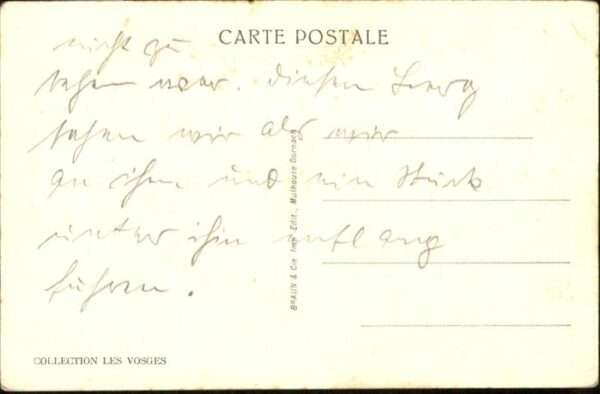 CARTE POSTALE
nicht zu
sehen war. diesen Berg
sahen wir als wir
an ihm und ein Stück
unter ihm entlang
fuhren.
BRAUN & Cie Imp. Edit., Mulhouse-Dornach
COLLECTION LES VOSGES